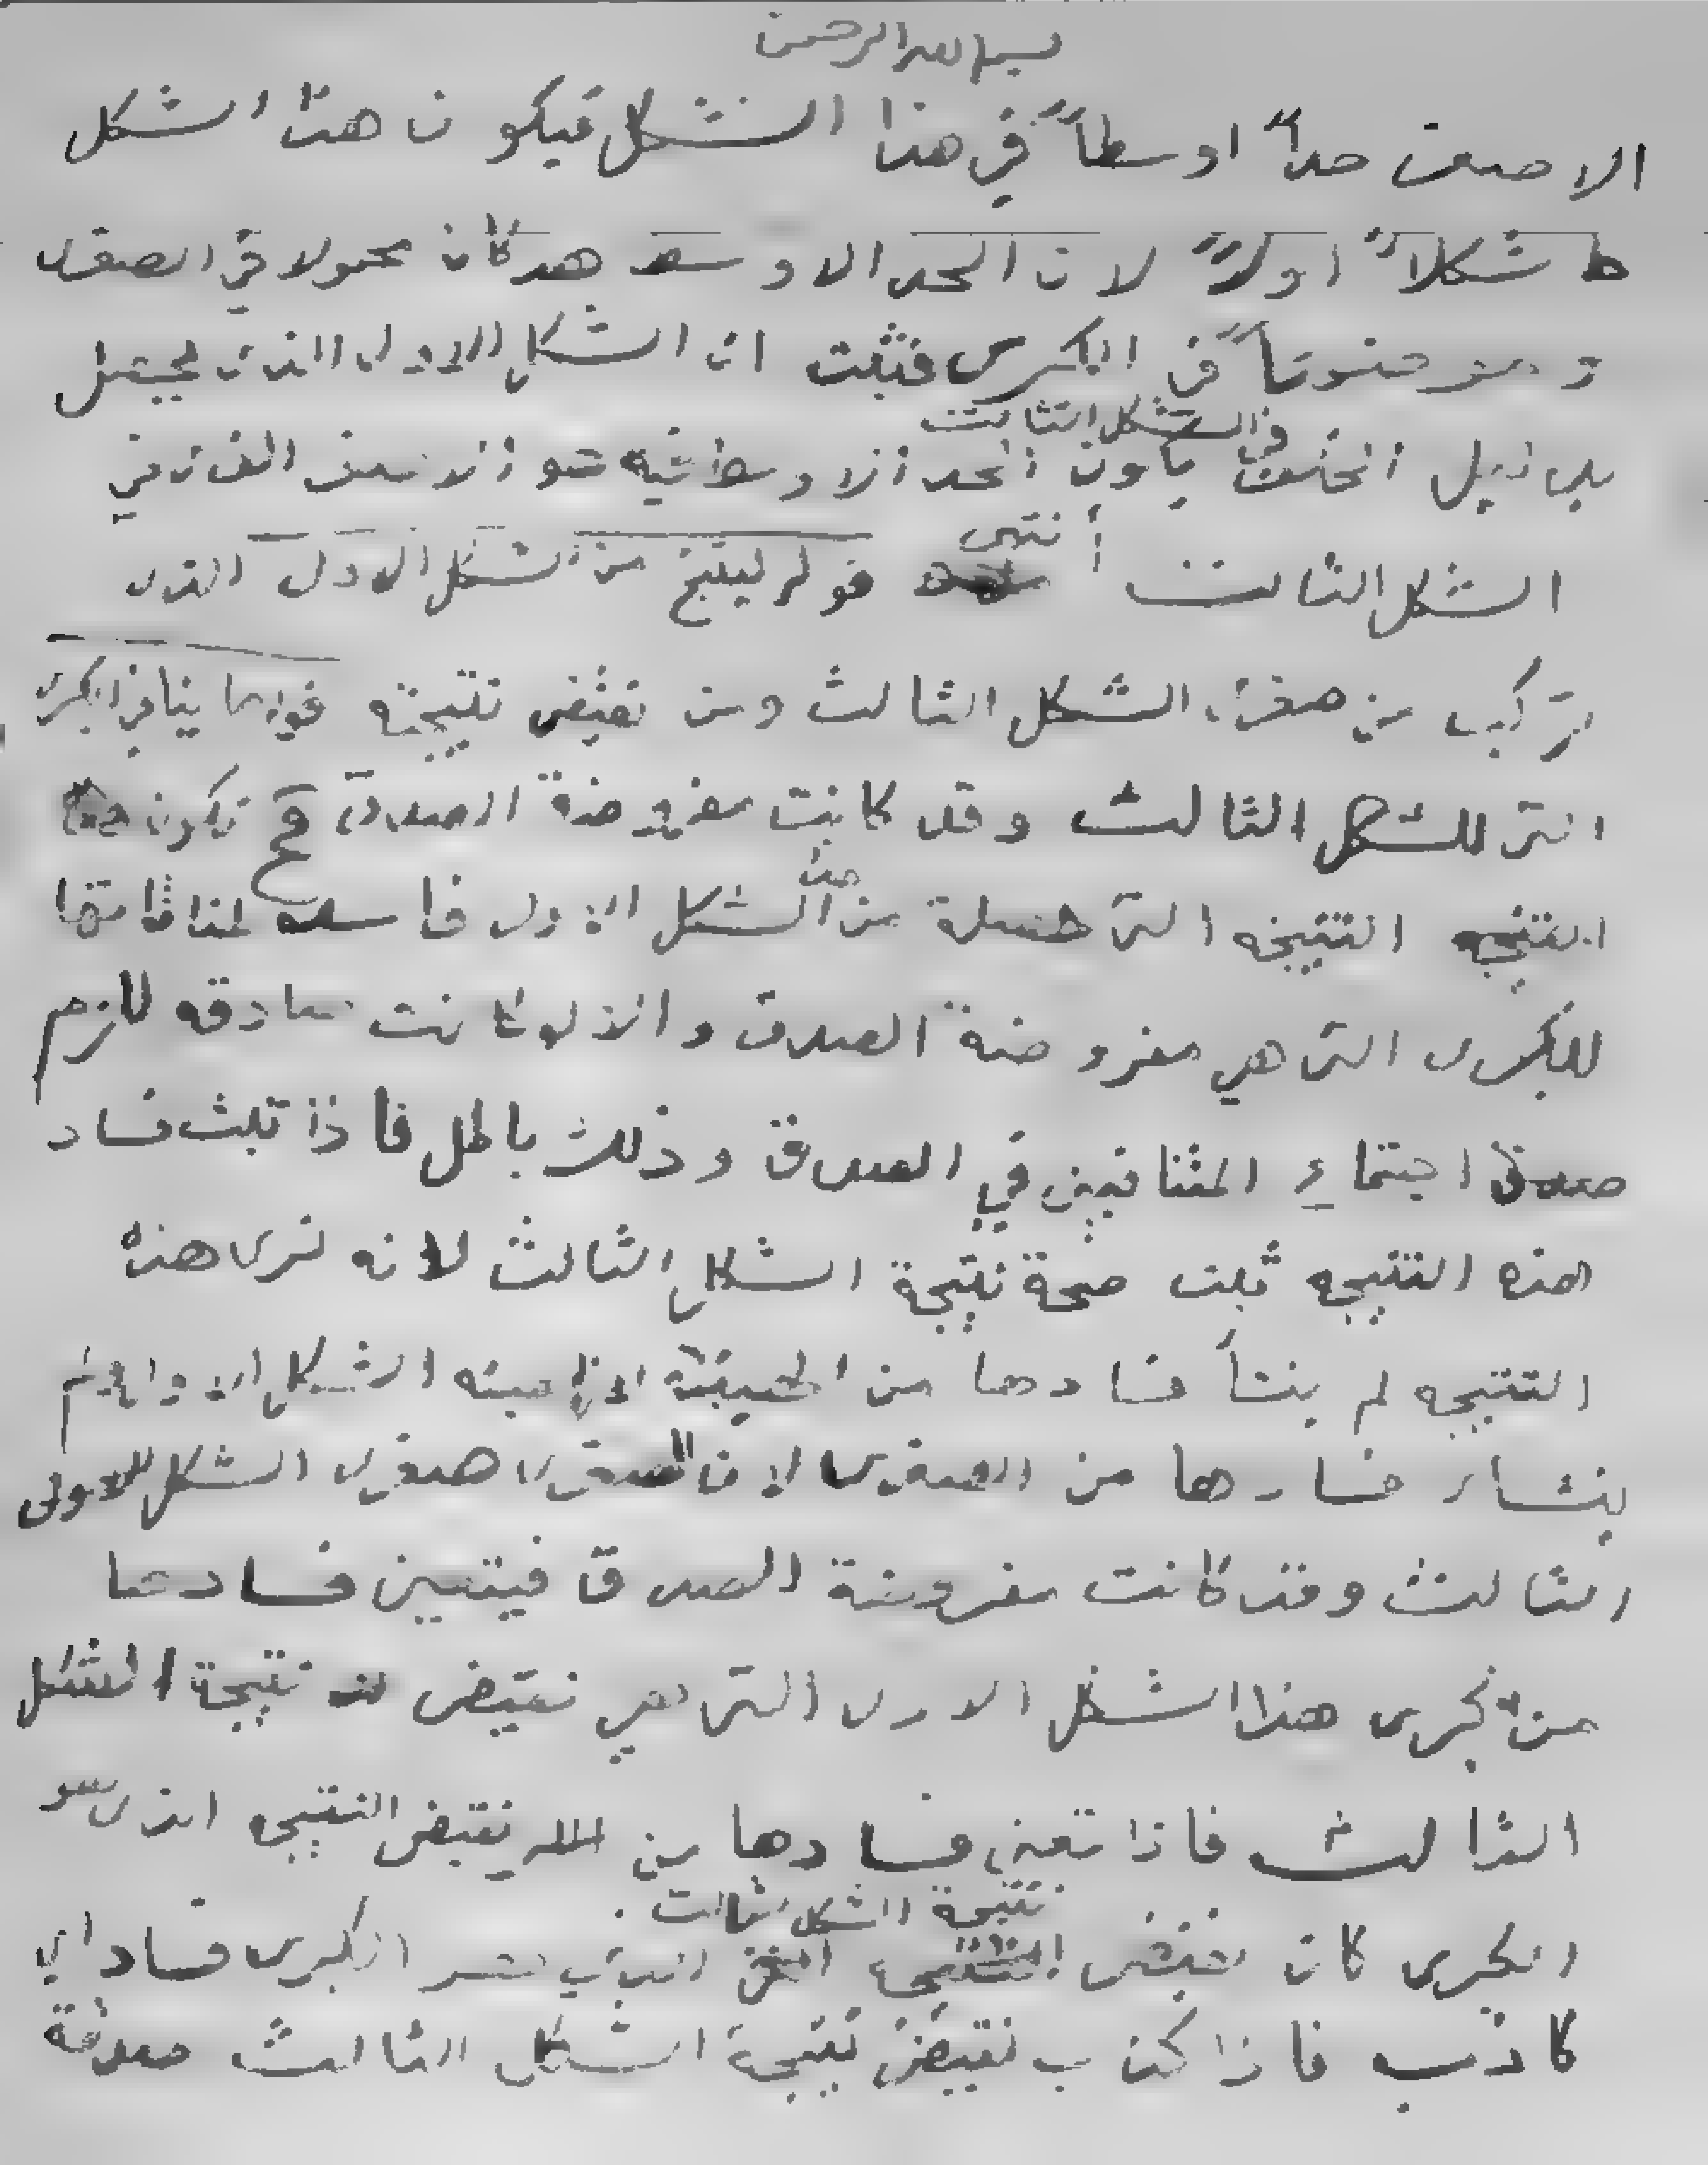 بسم الله الرحمن
الاصغر حداً اوسطاً في هذا الشكل فيكون هذا الشكل
شكلاً اولاً لان الحد الاوسط قد كان محمولا في الصغرى
وموضوعاً في الكبرى فثبت ان الشكل الاول الذي يحصل
بدليل الخلف يكون الحد الاوسط فيه هو الاصغر الذي في
في الشكل الثالث
الشكل الثالث أ انتهى قوله لينتج من الشكل الاول الذي
تركب من صغرى الشكل الثالث ومن نقيض نتيجته قوله ما ينافي الكبرى
التي للشكل الثالث وقد كانت مفروضة الصدق فح تكون هذه
النتيجه التي حصلة من هذا الشكل الاول فاسده لمنافاتها
للكبرى التي هي مفروضة الصدق والا لو كانت صادقه للزم
صدق اجتماع المتنافيين في الصدق وذلك باطل فاذا ثبت فساد
هذه النتيجه ثبت صحة نتيجة الشكل الثالث لانه نرى هذه
النتيجه لم ينشأ فسادها من الهيئة لانها هيئه الشكل الاول ولم
ينشاء فسادها من الصغرى لان الصغرى صغرى الشكل
الثالث وقد كانت مفروضة الصدق فيتعين فسادها
من كبرى هذا الشكل الاول التي هي نقيض نتيجة الشكل
الثالث فاذا تعين فسادها من نقيض النتيجه الذي هو
نتيجة الشكل الثالث
الكبرى كان نقيض الكبرى فساد اي
كاذب فاذا كذب نقيض نتيجة الشكل الثالث صدقة